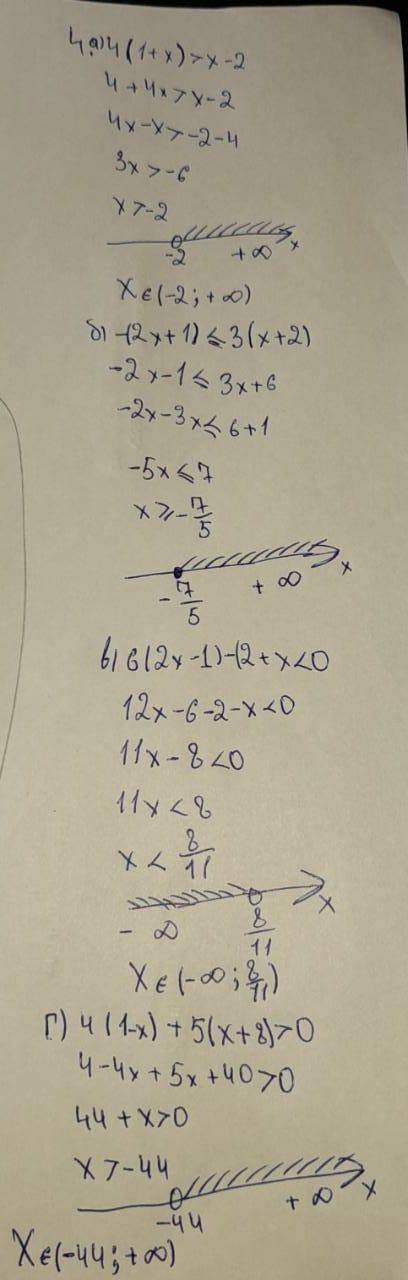 4 а) 4(1+x)>x-2
4+4x>x-2
4x-x>-2-4
3x>-6
x>-2
-2 +∞ x
x∈(-2;+∞)
б) -(2x+1)≤3(x+2)
-2x-1≤3x+6
-2x-3x≤6+1
-5x≤7
x≥-7/5
-7/5 +∞ x
в) 6(2x-1)-(2+x<0
12x-6-2-x<0
11x-8<0
11x<8
x<8/11
-∞ 8/11 x
x∈(-∞;8/11)
г) 4(1-x)+5(x+8)>0
4-4x+5x+40>0
44+x>0
x>-44
-44 +∞ x
x∈(-44;+∞)